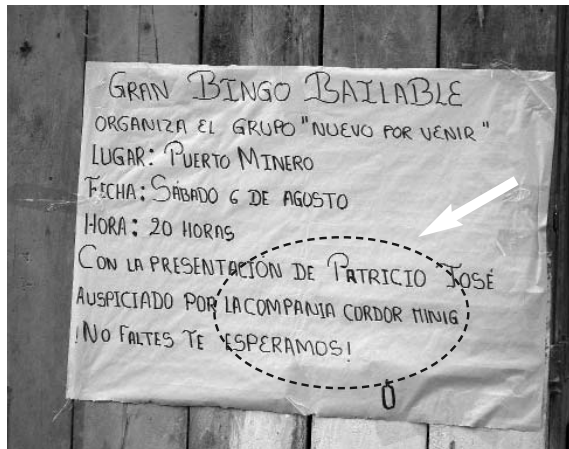 GRAN BINGO BAILABLE
ORGANIZA EL GRUPO "NUEVO POR VENIR"
LUGAR: PUERTO MINERO
FECHA: SÁBADO 6 DE AGOSTO
HORA: 20 HORAS
CON LA PRESENTACIÓN DE PATRICIO JOSÉ
AUSPICIADO POR LA COMPANIA CORDOR MINIG
¡NO FALTES TE ESPERAMOS!